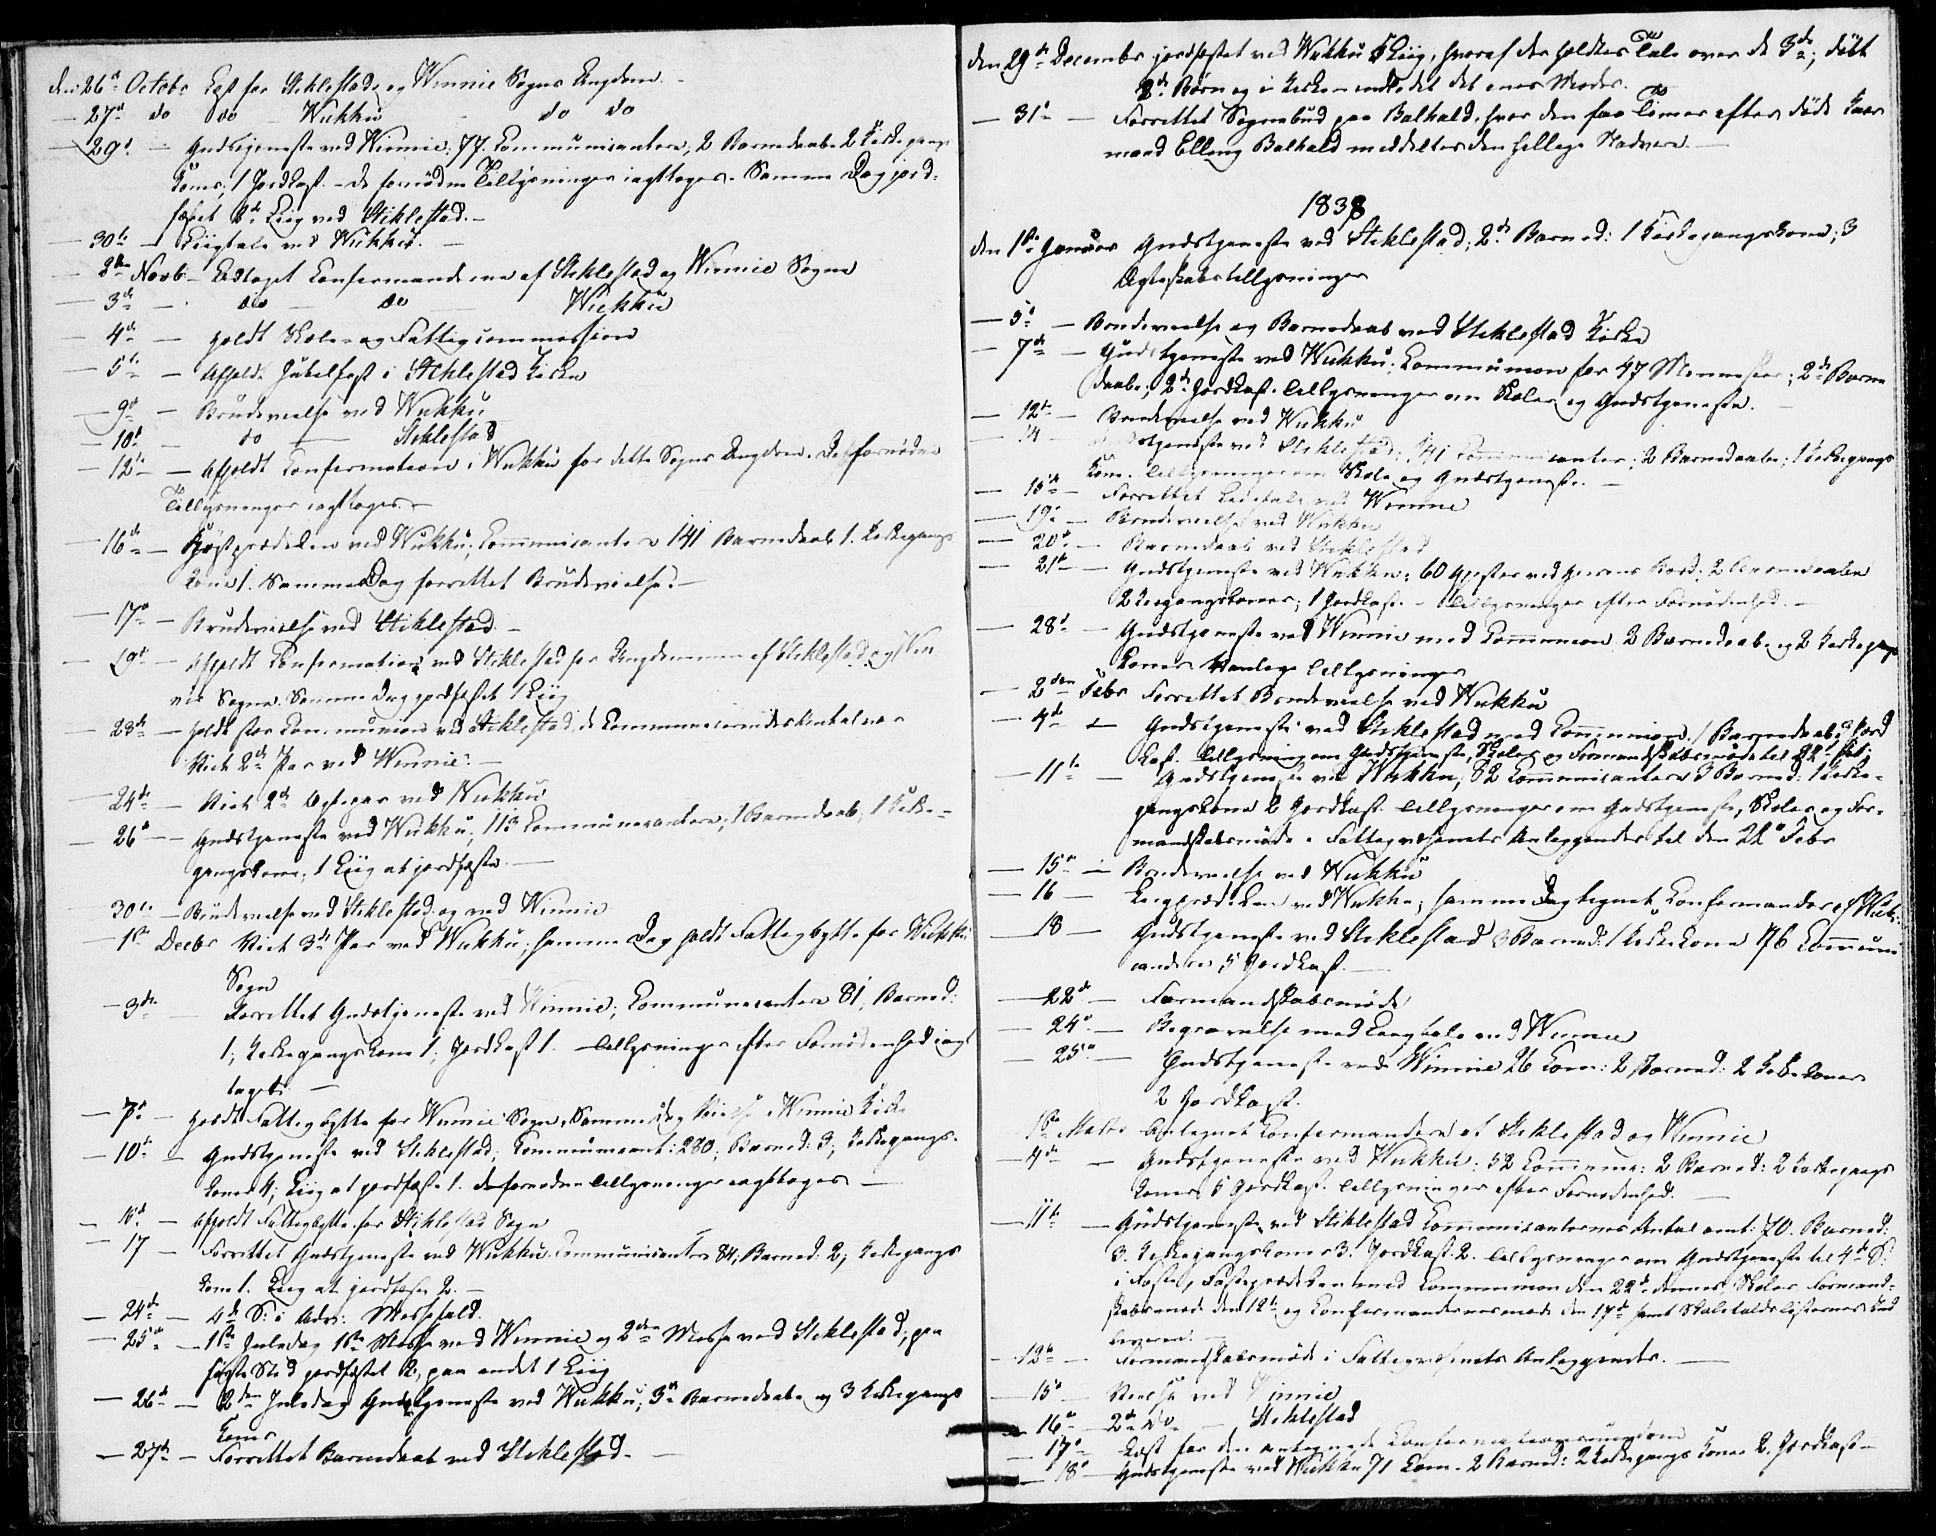 den 26de Octobr læst for Stiklestad og Winnie Sogns Ungdom. -
- 27de do do - Wukku do do
- 29de - Gudstjeneste ved Winnie; 77 Communicantere, 2 Barnedaab 2 Kirkegangs
koner, 1 Jordkast. - De fornødne Tillysninger iagttoges. Samme Dag jord-
fæstet 2de Liig ved Stiklestad. -
- 30te - Liigtale ved Wukku. -
- 2den Novb - Confirmanderne af Stiklestad og Winnie Sogne
- 3de - do - do Wukku
- 4de - holdt Skole- og Fattigcommission
- 5te - Afholdt Jubelfest i Stiklestad Kirke
- 9de - Brudevielse ved Wukku
- 10de - do - Stiklestad
- 12te - Afholdt Confirmation i Wukku for dette Sogns Ungdom. De fornødne
Tillysninger iagttoges. -
- 16de - Høstprædiken ved Wukku, Communicantere 141 Barnedaab 1. Kirkegangs
kone 1. Samme Dag forrettet Brudevielse. -
- 17de - Brudevielse ved Stiklestad. -
- 19de - Afholdt Confirmation ved Stiklestad for Ungdommen af Stiklestad og Win
nie Sogne. Samme Dag jordfæstet 1 Liig
- 23de - holdt stor Communion ved Stiklestad,
Viet 2de Par ved Winnie. -
- 24de - Viet 2de Ægtepar ved Wukku
- 26de - Gudstjeneste ved Wukku, 113 Communicantere, 1 Barnedaab, 1 Kirke-
gangskone, 1 Liig at jordfæste. -
30te - Brudevielse ved Stiklestad og ved Winnie
- 1ste Decbr Viet 3de Par ved Wukku; samme Dag holdt Fattigbytte for Wukku
Sogn
- 3de Forrettet Gudstjeneste ved Winnie; Communicantere 81, Barned:
1, Kirkegangskone 1, Jordkast 1. - Tillysninger efter Fornødenhed iagt
taget. -
- 7de - holdt Fattigbytte for Winnie Sogn, Samme Dag Vielse i Winnie Kirke
- 10de - Gudstjeneste ved Stiklestad, Communicant: 280, Barned: 3, Kirkegangs-
koner 4; Liig at jordfæste 1. de fornødne Tillysninger iagttoges -
- Afholdt Fattigbytte for Stiklestad Sogn
- 17 - Forrettet Gudstjeneste ved Wukku. Communicanter 84, Barned: 2, Kirkegangs
kone 1. Liig at jordfæste 2. -
- 24de - 4de S: i Adv: Messefald.
- 25de - 1ste Juledag 1ste Messe ved Winnie og 2den Messe ved Stiklestad; paa
første Sted jordfæstet 2, paa andet 1 Liig
- 26de - 2den Juledag Gudstjeneste ved Wukku; 3de Barnedaab og 3 Kirkegangs
koner
- 27de - Forrettet Barnedaab ved Stiklestad. -
den 29de Decembr jordfæstet ved Wukku 5 Liig, hvoraf der holdtes Tale over de 3de; døbt
2de Børn og i Kirke-indledet det enes Moder.
- 31te - Forrettet Sognebud paa Balhald, hvor den faa Timer efter døde Kaar
mand Elling Balhald meddeltes den hellige Nadvere. -
1838
den 1ste Januar Gudstjeneste ved Stiklestad; 2de Barned: 1 Kirkegangskone; 3
Ægteskabstillysninger
- 5te - Brudevielse og Barnedaab ved Stiklestad Kirke
- 7de - Gudstjeneste ved Wukku, Communion for 47 Mennesker; 2de Barne
daab; 2de Jordkast. Tillysninger om Skoler og Gudstjeneste. -
- 12te - Brudevielse ved Wukku
- 14 - Gudstjeneste ved Stiklestad; 141 Communicanter; 2 Barnedaab; 1 Kirkegangs
kone. Tillysninger om Skole og Gudstjeneste. -
- 15de - Forrettet Liigtale ved Winnie
- 19de - Brudevielse ved Wukku
- 20de - Barnedaab ved Stiklestad
- 21de - Gudstjeneste ved Wukku; 60 Gjester ved Herrens Bord; 2 Barnedaab
2 Kirkegangskoner; 1 Jordkast. - Tillysninger efter Fornødenhed. -
- 28de - Gudstjeneste ved Winnie med Communion 2 Barnedaab og 2 Kirkegangs
koner. Vanlige Tillysninger
- 2den Febr Forrettet Brudevielse ved Wukku
- 4de - Gudstjeneste ved Stiklestad med Communion. 1 Barnedaab, Jord
kast. Tillysning om Gudstjeneste, Skoler og Formandskabsmøde til 22de Febr.
- 11te - Gudstjeneste ved Wukku, 82 Communicantere 3 Barned: 1 Kirke-
gangskone 2 Jordkast. Tillysninger om Gudstjeneste, Skoler og For-
mandskabsmøde i Fattigvæsenets Anliggender til den 22de Febr
- 15de - Brudevielse ved Wukku
- 16 - Liigprædiken ved Wukku; samme Dag tegnet Confirmander af Wukku
- 18 - Gudstjeneste ved Stiklestad 3 Barned: 1 Kirkekone 76 Communi
cantere, 5 Jordkast. -
- 22de - Formandskabsmøde
- 24de - Begravelse med Liigtale ved Winnie
- 25de - Gudstjeneste ved Winnie 26 Com: 2 Barned: 2 Kirkekoner
2 Jordkast.
1ste Marts Antegnet Confirmandere af Stiklestad og Winnie
- 4de - Gudstjeneste ved Wukku: 52 Commun: 2 Barned: 2 Kirkegangs
koner 5 Jordkast. Tillysninger efter Fornødenhed. -
- 11te - Gudstjeneste ved Stiklestad Communicanternes Antal omt: 70. Barned:
3. Kirkegangskoner 3. Jordkast: 2. Tillysninger om Gudstjeneste til 4de S:
i Faste, Fasteprædiken med Communion den 22de dennes, Skoler, Formand-
skabsmøde den 12te og Confirmandernes møde den 17de samt Skoletoldslisternes Ind
levering. -
- 12te - Formandskabsmøde i Fattigvæsenets Anliggender. -
- 15de - Vielse ved Winnie
- 16de - 2de do - Stiklestad
- 17de - læst for den antegnede Confirmationsungdom
- 18de - Gudstjeneste ved Wukku 71 Com. 2 Barned: 2 Kirkegangs Koner 2 Jordkast -